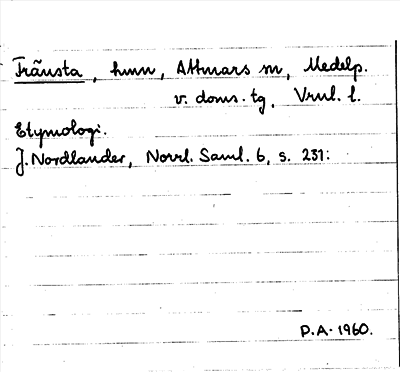 Träusta, hmn, Attmars sn, Medelp.
v. doms. tg, Vrml. l.
Etymologi.
J. Nordlander, Norrl. Saml. 6, s. 231:
P.A. 1960.